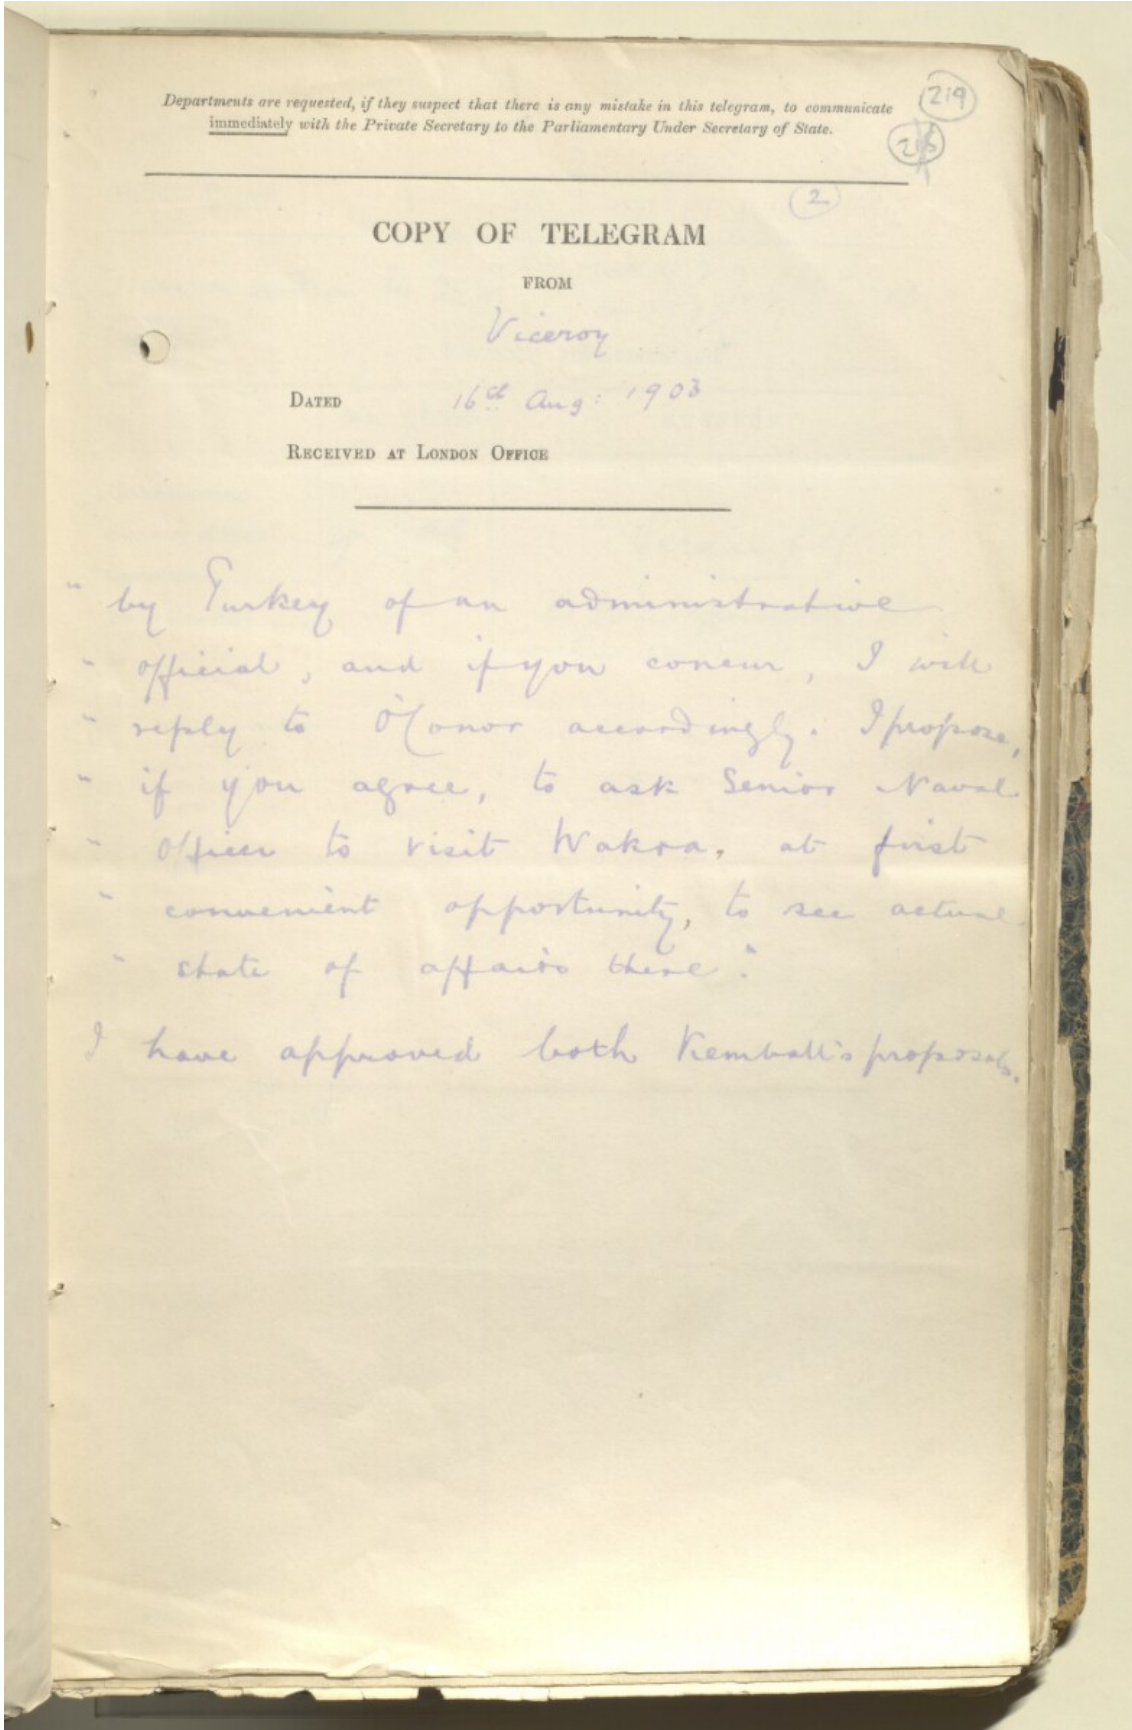 Departments are requested, if they suspect that there is any mistake in this telegram, to communicate
immediately with the Private Secretary to the Parliamentary Under Secretary of State.
219
2
COPY OF TELEGRAM
FROM
Viceroy
DATED 16th Aug: 1903
RECEIVED AT LONDON OFFICE
" by Turkey of an administrative
" official, and if you concur, I will
" reply to O'Conor accordingly. I propose,
" if you agree, to ask Senior Naval
" Officer to visit Wakra, at first
" convenient opportunity, to see actual
" state of affairs there."
I have approved both Kemball's proposals.